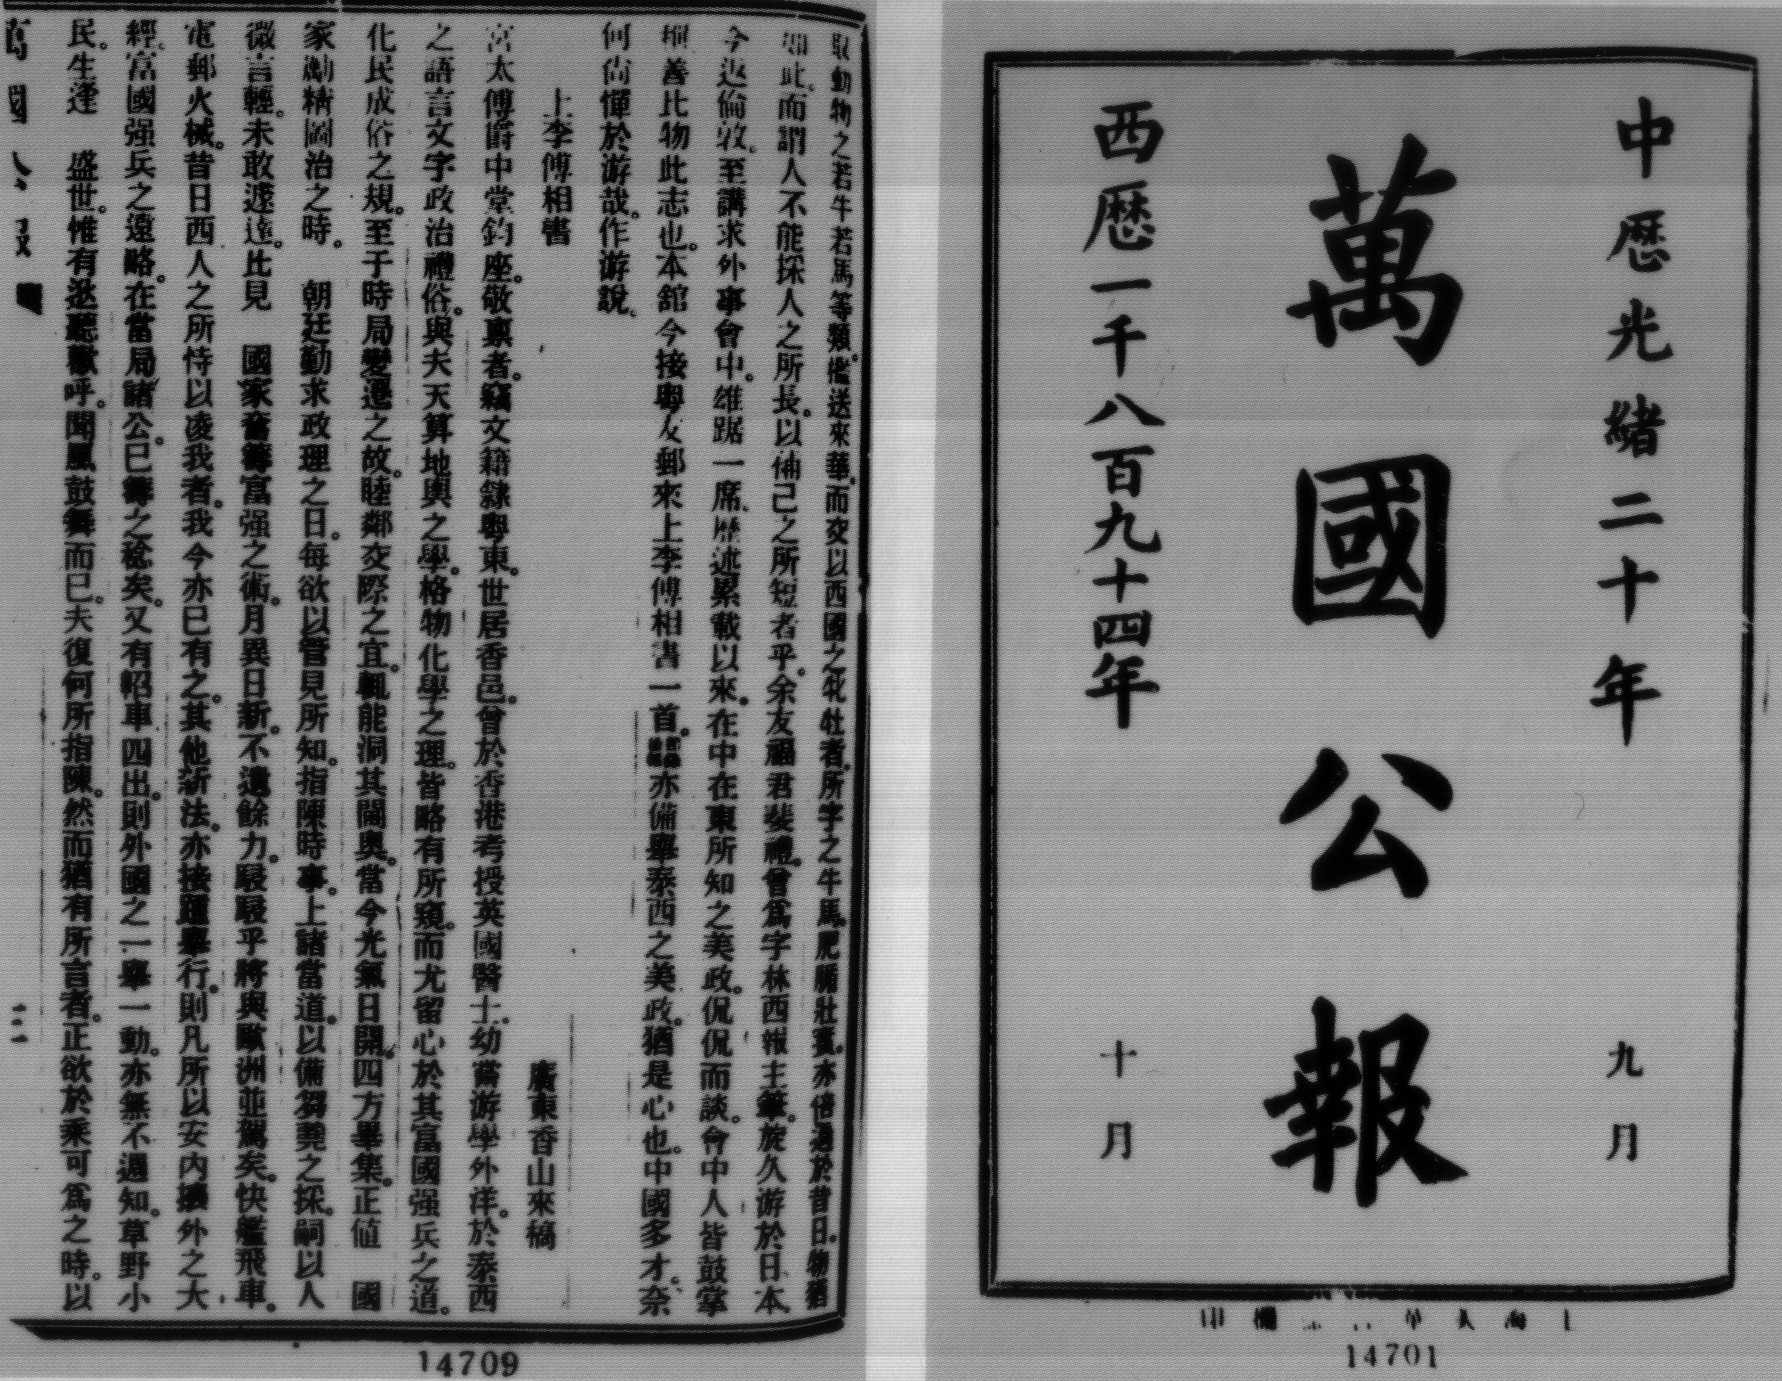 中歷光緒二十年 九月
萬國公報
西歷一千八百九十四年 十月
14701
取動物之若牛若馬等類。艦送來華。而交以西國之牝牡者。所字之牛馬。肥腯壯實。亦倍過於昔日。物猶
如此。而謂人不能採人之所長。以補己之所短者乎。余友福君斐禮。曾爲字林西報主筆。旋久游於日本。
今返倫敦。至講求外事會中。雄踞一席。歷述累載以來。在中在東所知之美政。侃侃而談。會中人皆鼓掌
稱善比物此志也。本館今接粵友郵來上李傅相書一首。亦備舉泰西之美政。猶是心也。中國多才。奈
何尚憚於游哉。作游說。
上李傅相書
廣東香山來稿
宮太傅爵中堂鈞座。敬稟者。竊文籍隸粵東。世居香邑。曾於香港考授英國醫士。幼嘗游學外洋。於泰西
之語言文字政治禮俗。與夫天算地輿之學。格物化學之理。皆略有所窺。而尤留心於其富國强兵之道。
化民成俗之規。至于時局變遷之故。睦鄰交際之宜。輒能洞其閫奧。當今光氣日開。四方畢集。正値 國
家勵精圖治之時。 朝廷勤求政理之日。每欲以管見所知。指陳時事。上諸當道。以備芻蕘之採。嗣以人
微言輕。未敢遽達。比見 國家奮籌富强之術。月異日新。不遺餘力。駸駸乎將與歐洲並駕矣。快艦飛車。
電郵火械。昔日西人之所恃以凌我者。我今亦已有之。其他新法。亦接踵舉行。則凡所以安內攘外之大
經。富國强兵之遠略。在當局諸公。已籌之稔矣。又有軺車四出。則外國之一舉一動。亦無不週知。草野小
民。生逢 盛世。惟有逖聽歡呼。聞風鼓舞而已。夫復何所指陳。然而猶有所言者。正欲於乘可爲之時。以
萬國公報
14709